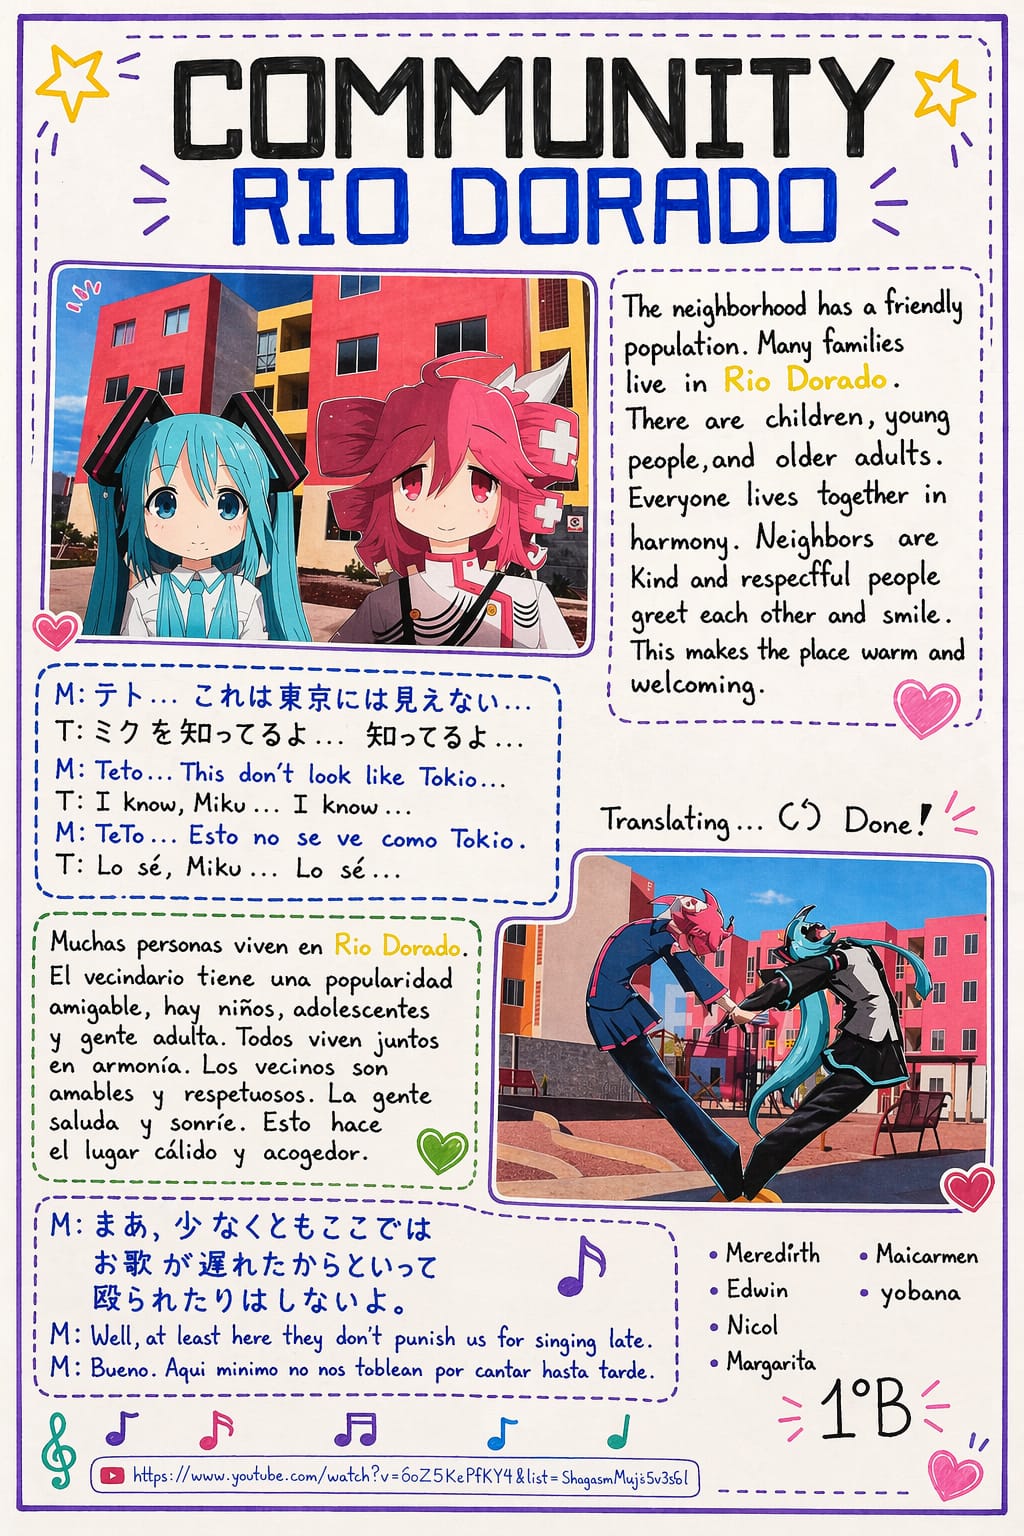 COMMUNITY
RIO DORADO
The neighborhood has a friendly
population. Many families
live in Rio Dorado.
There are children, young
people, and older adults.
Everyone lives together in
harmony. Neighbors are
Kind and respecfful people
greet each other and smile.
This makes the place warm and
welcoming.
M: テト... これは東京には見えない...
T: ミクを知ってるよ... 知ってるよ...
M: Teto... This don't look like Tokio...
T: I know, Miku... I know...
M: TeTo... Esto no se ve como Tokio.
T: Lo sé, Miku... Lo sé...
Translating... Done!
Muchas personas viven en Rio Dorado.
El vecindario tiene una popularidad
amigable, hay niños, adolescentes
y gente adulta. Todos viven juntos
en armonía. Los vecinos son
amables y respetuosos. La gente
saluda y sonríe. Esto hace
el lugar cálido y acogedor.
M: まあ, 少なくともここでは
お歌が遅れたからといって
殴られたりはしないよ。
M: Well, at least here they don't punish us for singing late.
M: Bueno. Aqui minimo no nos toblean por cantar hasta tarde.
• Meredirth
• Edwin
• Nicol
• Margarita
• Maicarmen
• yobana
1°B
https://www.youtube.com/watch?v=6oZ5KePfKY4&list=ShagasmMujs5v3s6l